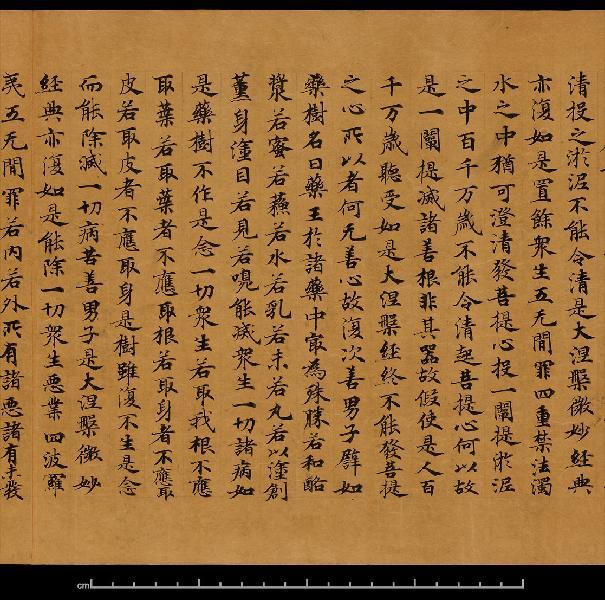 清投之淤泥不能令清是大涅槃微妙經典
亦復如是置餘衆生五无間罪四重禁法濁
水之中猶可澄清發菩提心投一闡提淤泥
之中百千万歲不能令清起菩提心何以故
是一闡提滅諸善根非其器故假使是人百
千万歲聽受如是大涅槃經終不能發菩提
之心所以者何无善心故復次善男子譬如
藥樹名曰藥王於諸藥中寂為殊勝若和酪
漿若蜜若蘓若水若乳若末若丸若以塗創
薰身塗目若見若嗅能滅衆生一切諸病如
是藥樹不作是念一切衆生若取我根不應
取葉若取葉者不應取根若取身者不應取
皮若取皮者不應取身是樹雖復不生是念
而能除滅一切病苦善男子是大涅槃微妙
經典亦復如是能除一切衆生悪業四波羅
夷五无間罪若内若外所有諸悪諸有未發